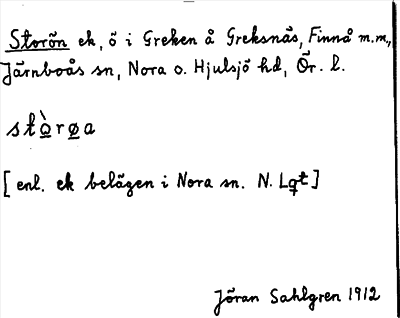 Storön ek, ö i Greken å Greksnäs, Finnå m.m.,
Järnboås sn, Nora o. Hjulsjö hd, Ör. l.
stò̱rø̱a
[enl. ek belägen i Nora sn. N. Lgt]
Jöran Sahlgren 1912